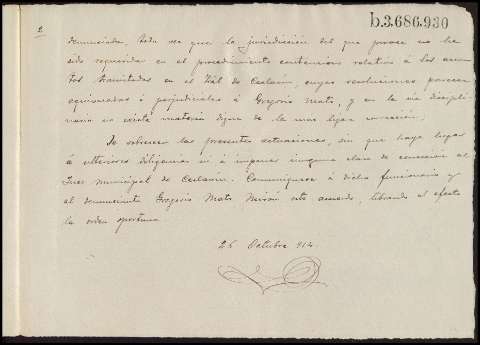 b.3.686.930
2
denunciada, toda vez que la jurisdicción del que parece no ha
sido requerida en el procedimiento contencioso relativo á los asun-
tos tramitados en el Tbal de Ceclavín, cuyas resoluciones parecen
equivocadas o perjudiciales á Gregorio Mato, y en la via discipli-
naria no existe materia digna de la mas ligera corrección.
Se sobreseen las presentes actuaciones, sin que haya lugar
á ulteriores diligencias ni á imponer ninguna clase de corrección al
Juez municipal de Ceclavín. Comuníquese á dicho funcionario y
al denunciante Gregorio Mato Mirón este acuerdo, librando al efecto
la orden oportuna.
26 Octubre 914.